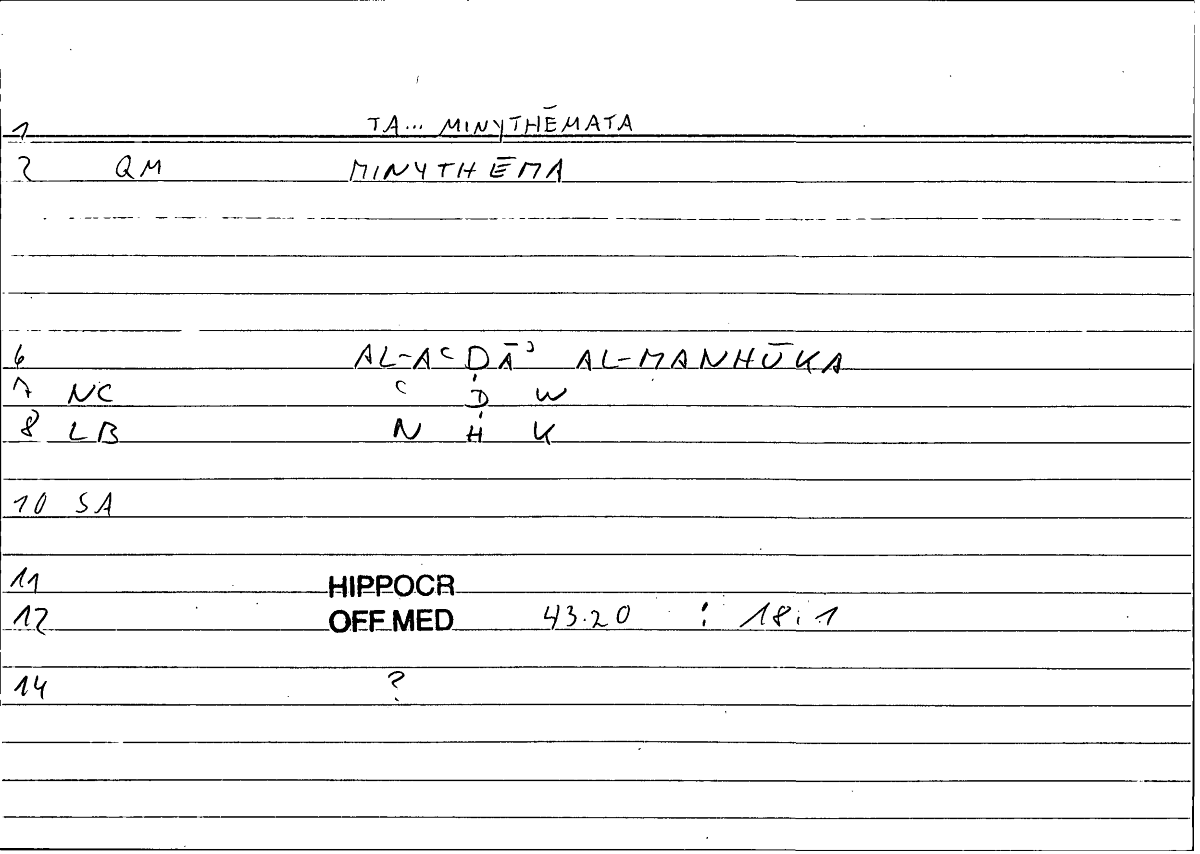 1 TA... MINYTHĒMATA
2 QM MINYTHĒMA
6 AL-AʿḌĀʾ AL-MANHŪKA
7 NC ʿ Ḍ W
8 LB N H K
10 SA
11 HIPPOCR
12 OFF.MED 43.20 : 18.1
14 ?